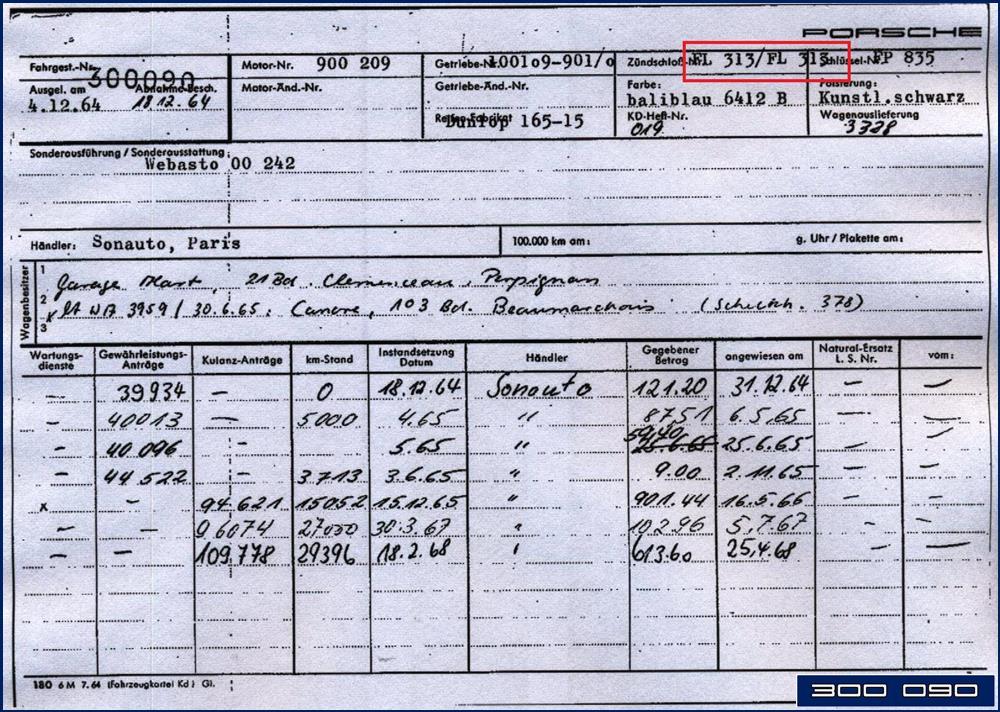 PORSCHE
Fahrgest.-Nr. 300090 Motor-Nr. 900 209 Getriebe-Nr. 100109-901/0 Zündschloß-Nr. FL 313/FL 313 Schlüssel-Nr. FP 835
Ausgel. am 4.12.64 Abnahme-Besch. 18.12.64 Motor-Änd.-Nr. Getriebe-Änd.-Nr. Farbe: baliblau 6412 B Polsterung: Kunstl.schwarz
Reifen-Fabrikat Dunlop 165-15 KD-Heft-Nr. 019 Wagenauslieferung 3328
Sonderausführung / Sonderausstattung:
Webasto 00 242
Händler: Sonauto, Paris 100.000 km am: g. Uhr / Plakette am:
Wagenbesitzer
1 Garage Mart, 21 Bd. Clemenceau, Perpignan
2 lt WA 3959 / 30.6.65: Canore, 103 Bd. Beaumarchais 378)
3
Wartungsdienste Gewährleistungs-Anträge Kulanz-Anträge km-Stand Instandsetzung Datum Händler Gegebener Betrag angewiesen am Natural-Ersatz L. S. Nr. vom:
— 39934 — 0 18.12.64 Sonauto 121.20 31.12.64 — —
— 40013 — 5000 4.65 " 87,51 6.5.65 — —
— 40096 - 5.65 " 59,40 25.6.65 25.6.65 — —
— 44522 3713 3.6.65 " 9.00 2.11.65 — —
x - 94621 15052 15.12.65 " 901.44 16.5.66 — —
— — 96074 27000 30.3.67 " 102.96 5.7.67 - —
— — 109.778 29396 18.2.68 " 613.60 25.4.68 — —
180 6 M 7. 64 (Fahrzeugkartei Kd) Gl.
300 090